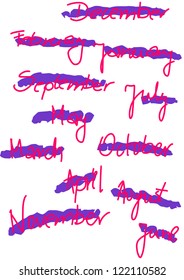 December
February January
September
July
May
March October
April
August
November
June
www.shutterstock.com · 122110582